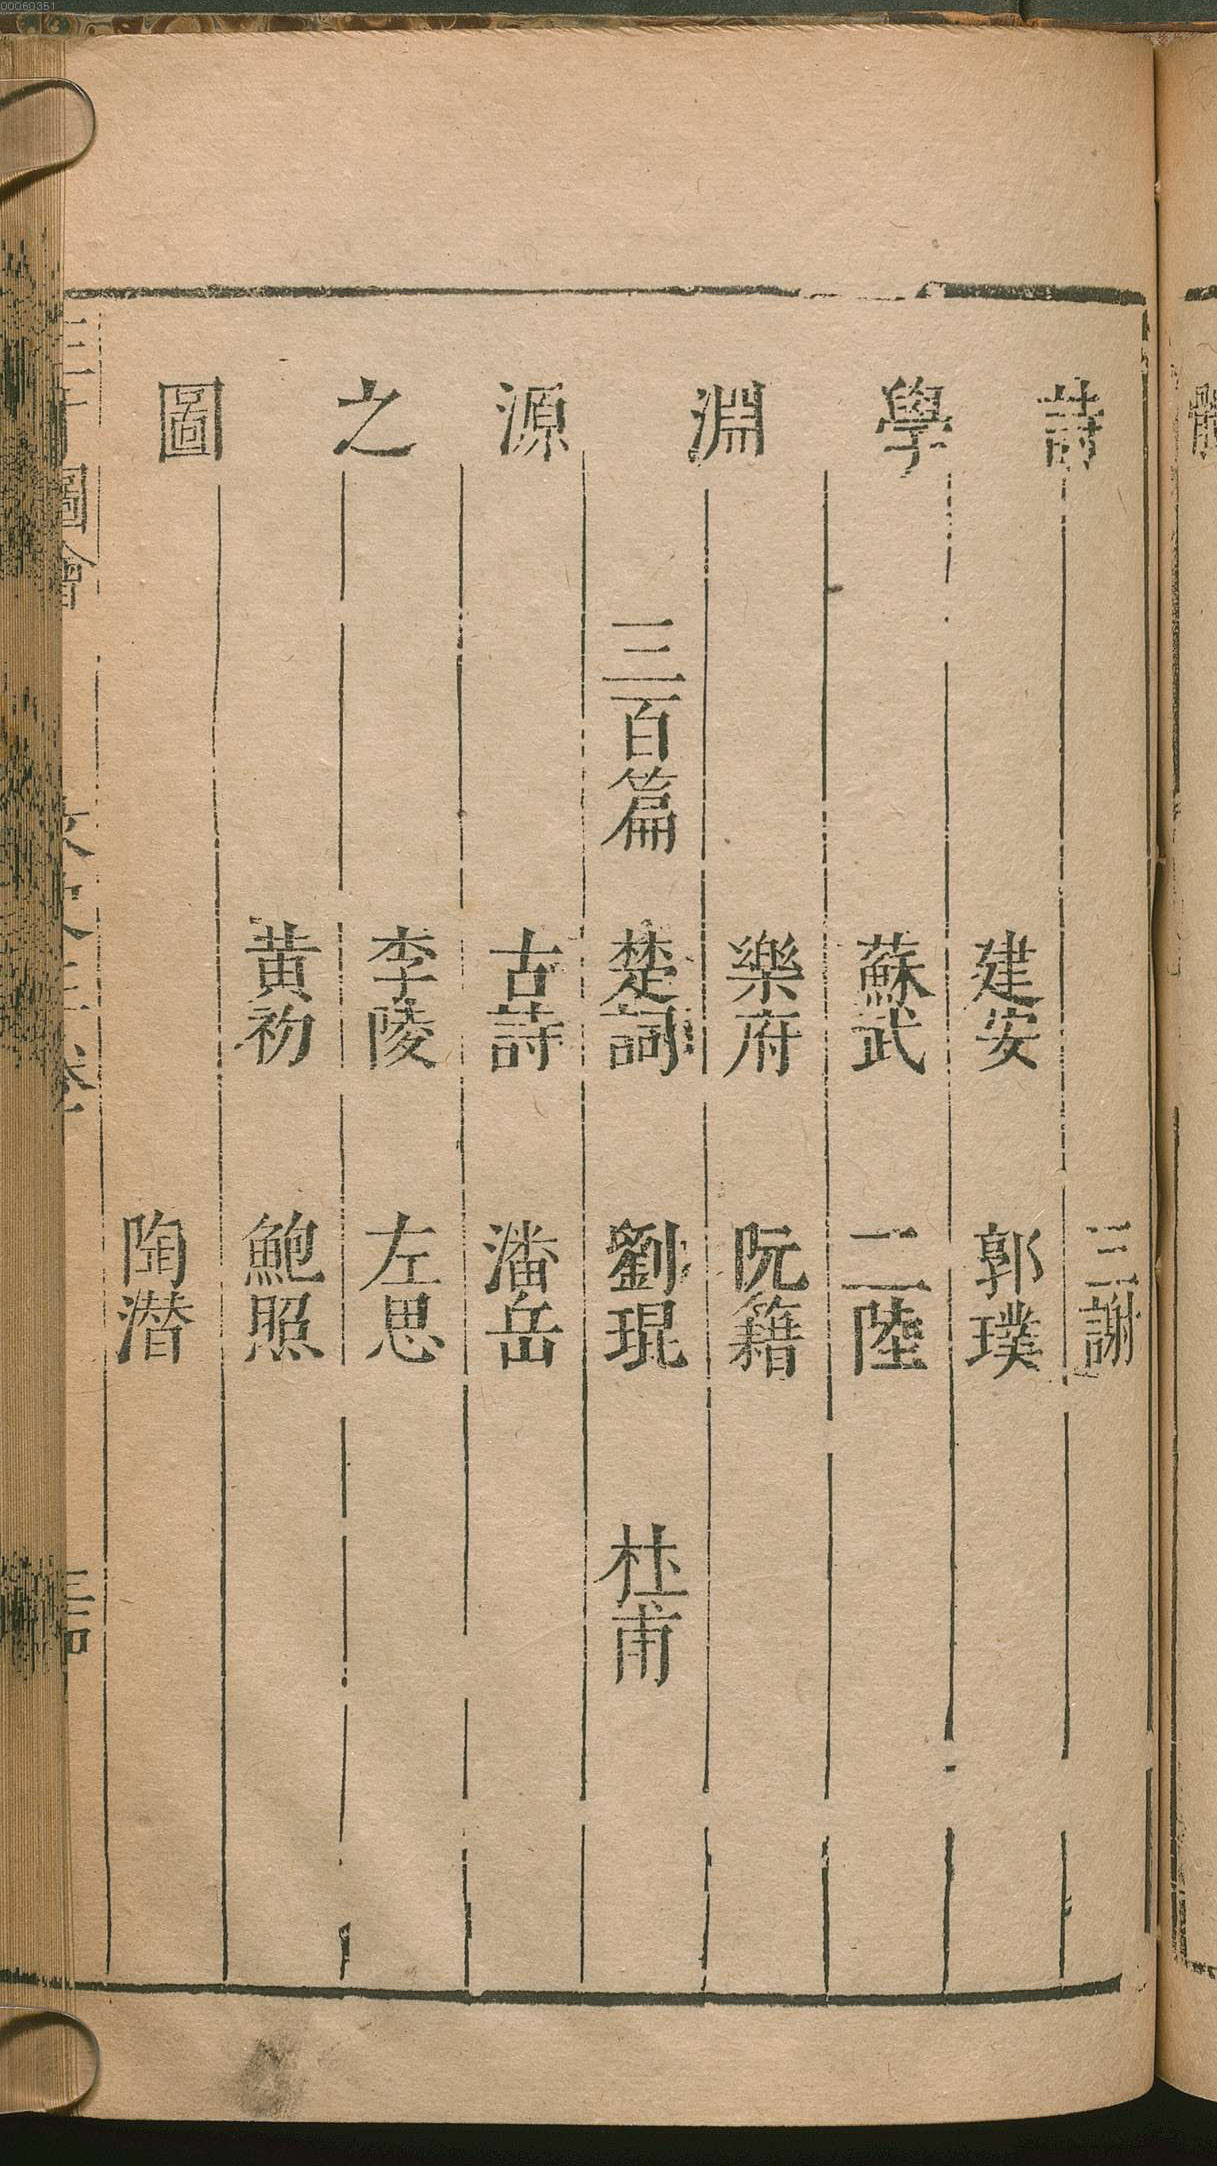 00060351
詩學淵源之圖
三百篇
建安
蘇武
樂府
楚詞
古詩
李陵
黄初
三謝
郭璞
二陸
阮籍
劉琨
潘岳
左思
鮑照
陶潜
杜甫